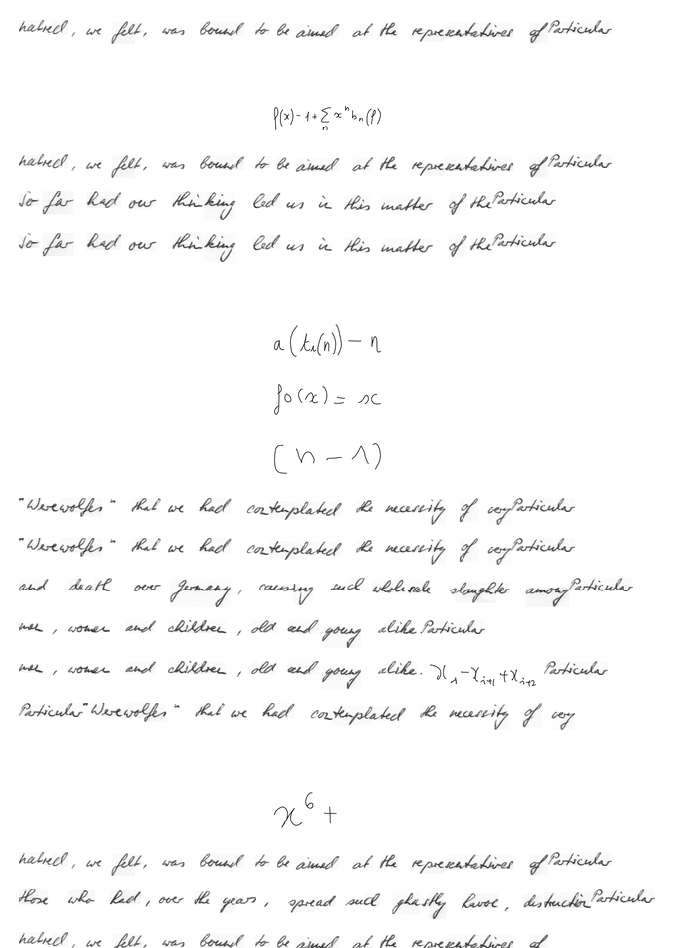 hatred, we felt, was bound to be aimed at the representatives of Particular
f(x) - 1 + ∑_n x^n b_n(f)
hatred, we felt, was bound to be aimed at the representatives of Particular
So far had our thinking led us in this matter of the Particular
So far had our thinking led us in this matter of the Particular
a(t_1(n)) - n
f0(x) = x
(n - 1)
"Werewolfes" that we had contemplated the necessity of very Particular
"Werewolfes" that we had contemplated the necessity of very Particular
and death over Germany, causing such wholesale slaughter among Particular
men, women and children, old and young alike Particular
men, women and children, old and young alike. x_1 - x_{i+1} + x_{i+2} Particular
Particular "Werewolfes" that we had contemplated the necessity of very
x^6 +
hatred, we felt, was bound to be aimed at the representatives of Particular
those who had, over the years, spread such ghastly havoc, destruction Particular
hatred, we felt, was bound to be aimed at the representatives of